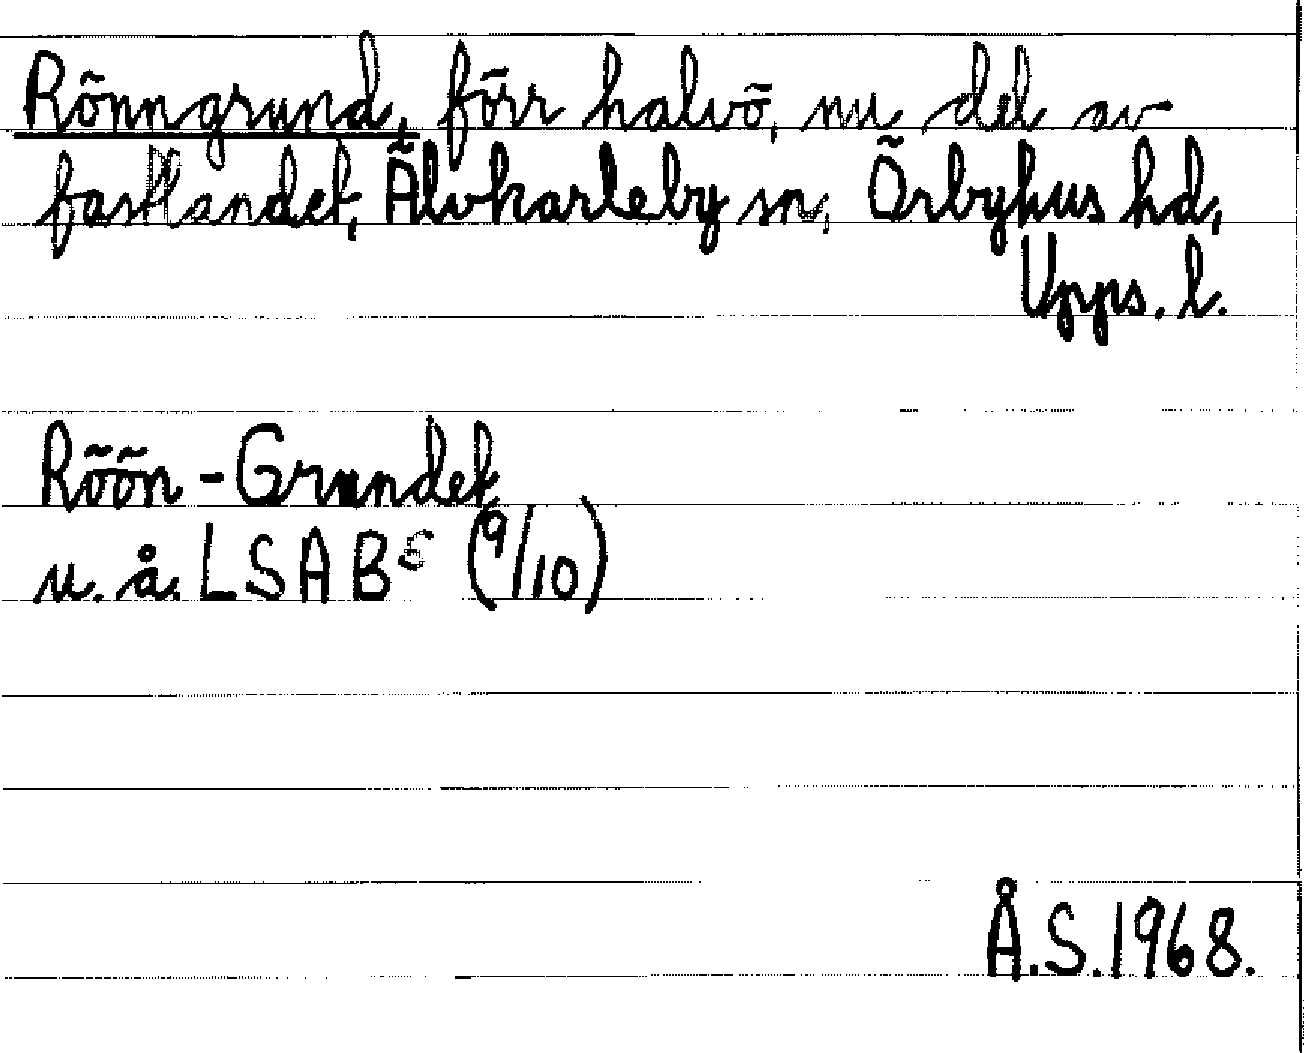 Rönngrund, förr halvö, nu del av
fastlandet, Älvkarleby sn, Örbyhus hd,
Upps. l.
Röön-Grundet
u. å. LSA B⁵ (9/10)
Å.S. 1968.